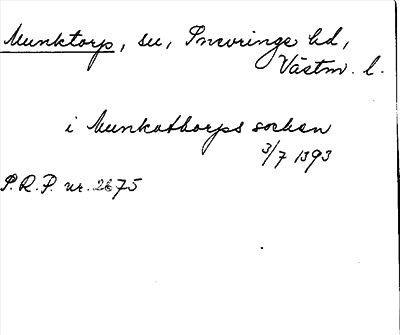 Munktorp, se, Snevringe hd,
Västm. l.
i Munkathorps socken
3/7 1393
P.R.P. nr. 2675